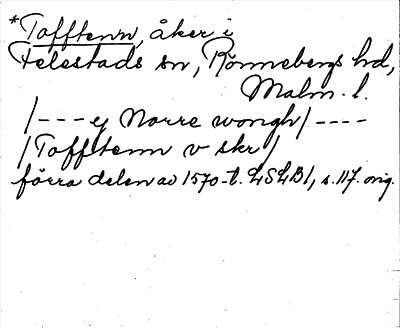 *Tofftenn, åker i
Felestads sn, Rönnebergs hd,
Malm. l.
/---ej Norre wongh/----
/Tofftenn v skr/
förra delen av 1570-t. LSLB1, s. 117. orig.